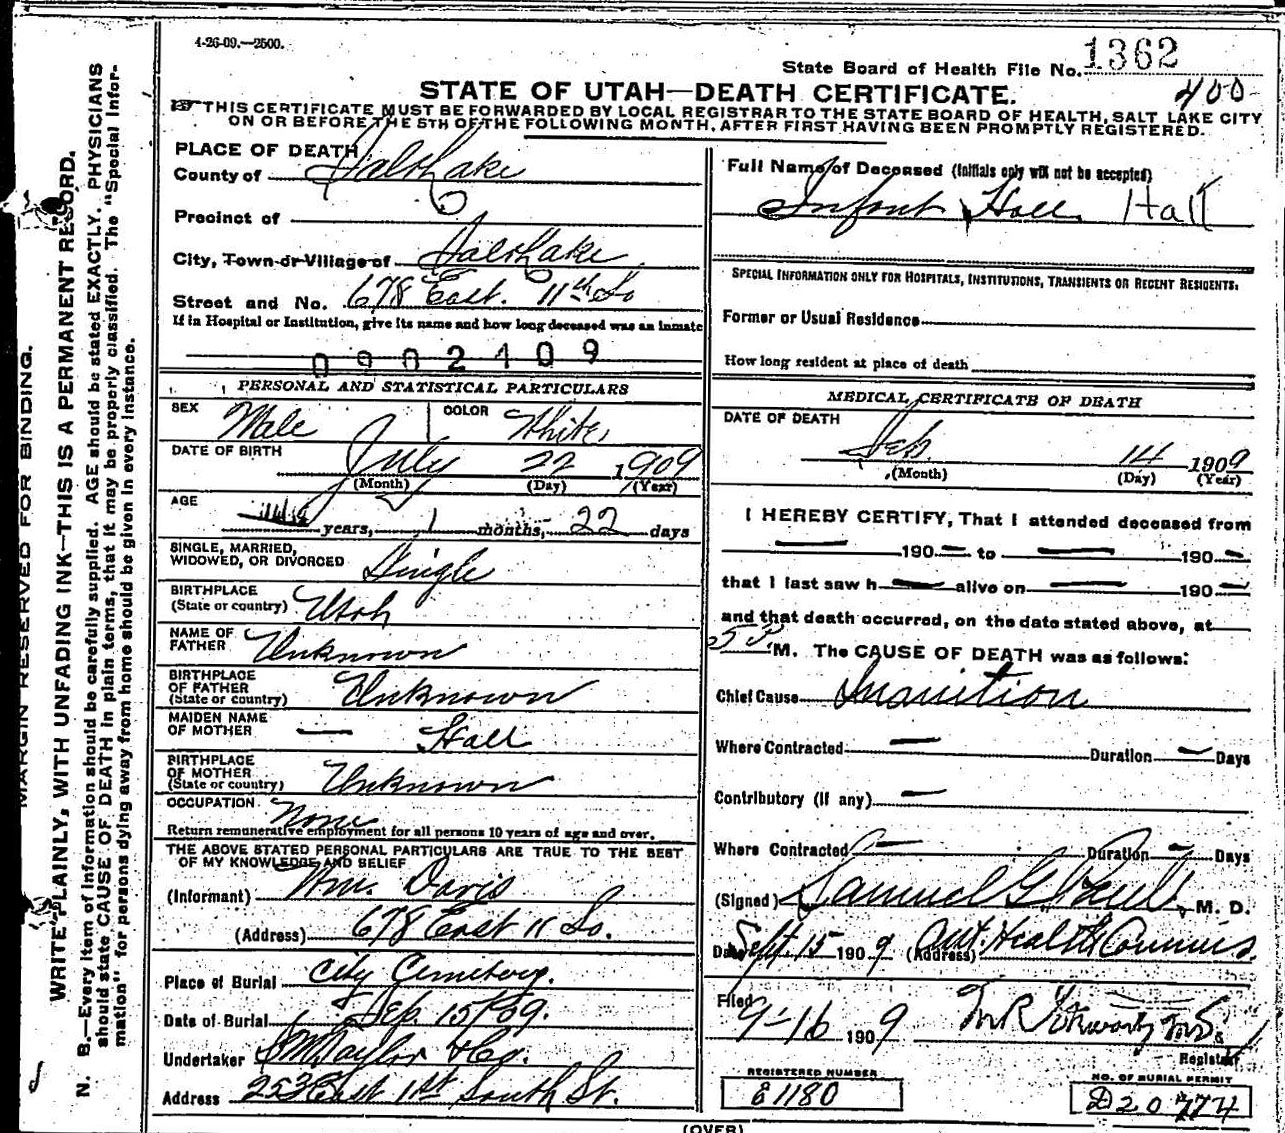 4-26-09.—2500.
State Board of Health File No. 1362
STATE OF UTAH—DEATH CERTIFICATE.
400
THIS CERTIFICATE MUST BE FORWARDED BY LOCAL REGISTRAR TO THE STATE BOARD OF HEALTH, SALT LAKE CITY
ON OR BEFORE THE 5TH OF THE FOLLOWING MONTH, AFTER FIRST HAVING BEEN PROMPTLY REGISTERED.
PLACE OF DEATH
County of Salt Lake
Precinct of
City, Town or Village of Salt Lake
Street and No. 678 East. 11th So
If in Hospital or Institution, give its name and how long deceased was an inmate
0902409
PERSONAL AND STATISTICAL PARTICULARS
SEX Male COLOR White
DATE OF BIRTH July 22 1909
(Month) (Day) (Year)
AGE years, 1 months, 22 days
SINGLE, MARRIED,
WIDOWED, OR DIVORCED Single
BIRTHPLACE
(State or country) Utah
NAME OF
FATHER Unknown
BIRTHPLACE
OF FATHER
(State or country) Unknown
MAIDEN NAME
OF MOTHER — Hall
BIRTHPLACE
OF MOTHER
(State or country) Unknown
OCCUPATION None
Return remunerative employment for all persons 10 years of age and over.
THE ABOVE STATED PERSONAL PARTICULARS ARE TRUE TO THE BEST
OF MY KNOWLEDGE AND BELIEF
(Informant) Wm. Davis
(Address) 678 East 11 So.
Place of Burial City Cemetery.
Date of Burial Sep. 15/09.
Undertaker S.M. Taylor & Co.
Address 253 East 1st South St.
Full Name of Deceased (Initials only will not be accepted)
Infant Hall Hall
SPECIAL INFORMATION ONLY FOR HOSPITALS, INSTITUTIONS, TRANSIENTS OR RECENT RESIDENTS:
Former or Usual Residence
How long resident at place of death
MEDICAL CERTIFICATE OF DEATH
DATE OF DEATH
Sep. 14 1909
(Month) (Day) (Year)
I HEREBY CERTIFY, That I attended deceased from
— 190— to — 190—
that I last saw h— alive on — 190—
and that death occurred, on the date stated above, at
5 P. M. The CAUSE OF DEATH was as follows:
Chief Cause Inanition
Where Contracted — Duration — Days
Contributory (if any) —
Where Contracted — Duration — Days
(Signed) Samuel G. M. D.
Date Sept. 15 1909 (Address) Health Commis.
Filed
9-16 1909 M.D.
Registrar
REGISTERED NUMBER
E1180
NO. OF BURIAL PERMIT
D20774
(OVER)
MARGIN RESERVED FOR BINDING.
WRITE PLAINLY, WITH UNFADING INK—THIS IS A PERMANENT RECORD.
N. B.—Every item of information should be carefully supplied. AGE should be stated EXACTLY. PHYSICIANS
should state CAUSE OF DEATH in plain terms, that it may be properly classified. The "Special Infor-
mation" for persons dying away from home should be given in every instance.